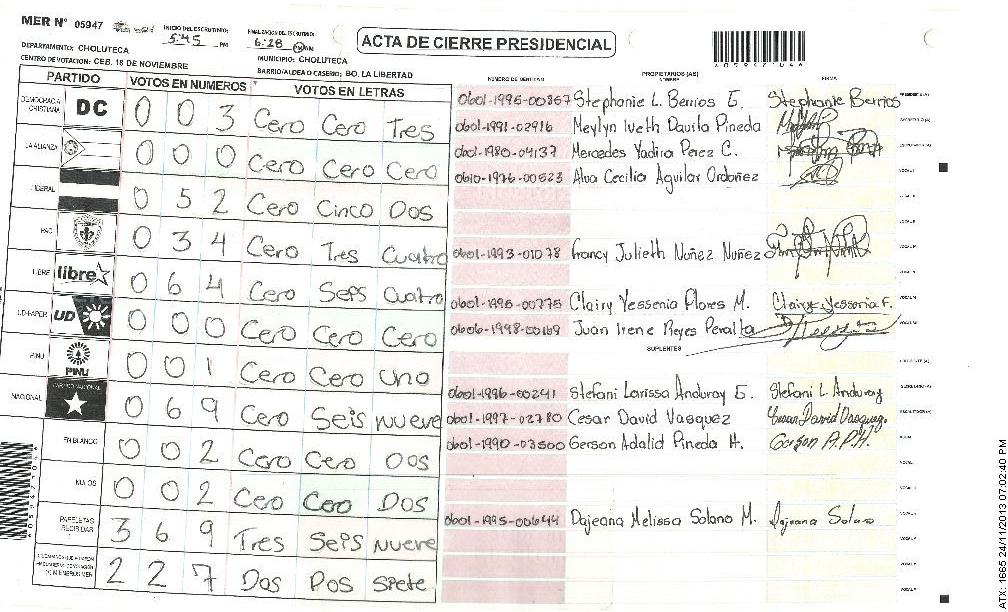 MER N° 05947
INICIO DEL ESCRUTINIO: 5:45 PM
FINALIZACION DEL ESCRUTINIO: 6:28 PM AM
ACTA DE CIERRE PRESIDENCIAL
DEPARTAMENTO: CHOLUTECA
MUNICIPIO: CHOLUTECA
CENTRO DE VOTACION: CEB. 18 DE NOVIEMBRE
BARRIO/ALDEA O CASERIO: BO. LA LIBERTAD
PARTIDO VOTOS EN NUMEROS VOTOS EN LETRAS
DEMOCRACIA CRISTIANA DC 0 0 3 Cero Cero Tres
LA ALIANZA 0 0 0 Cero Cero Cero
LIBERAL 0 5 2 Cero Cinco Dos
PAC 0 3 4 Cero Tres Cuatro
LIBRE libre 0 6 4 Cero Seis Cuatro
UD-FAPER UD 0 0 0 Cero Cero Cero
PINU PINU 0 0 1 Cero Cero Uno
NACIONAL PARTIDO NACIONAL 0 6 9 Cero Seis nueve
EN BLANCO 0 0 2 Cero Cero Dos
NULOS 0 0 2 Cero Cero Dos
PAPELETAS RECIBIDAS 3 6 9 Tres Seis nueve
2 2 7 Dos Dos Siete
NUMERO DE IDENTIDAD PROPIETARIOS (AS) NOMBRE FIRMA
0601-1995-00867 Stephanie L. Berrios E. Stephanie Berrios PRESIDENTE(A)
0601-1991-02916 Meylyn Iveth Davila Pineda SECRETARIO (A)
0601-1980-04137 Mercedes Yadira Perez C. ESCRUTADOR (A)
0610-1976-00523 Alva Cecilia Aguilar Ordoñez VOCAL I
0601-1993-01078 Francy Julieth Nuñez Nuñez
0601-1995-00775 Clairy Yessenia Flores M. Clairy Yessenia F.
0606-1998-00169 Juan Irene Reyes Peralta
SUPLENTES
0601-1996-00291 Stefani Larissa Anduray E. Stefani L Anduray SECRETARIO (A)
0601-1997-02780 Cesar David Vasquez Cesar David Vasquez. ESCRUTADOR (A)
0601-1990-03500 Gerson Adalid Pineda H. Gerson A.P.H.
0601-1995-00644 Dajeana Melissa Solano M. Dajeana Solano
ATX: 1665 24/11/2013 07:02:40 PM